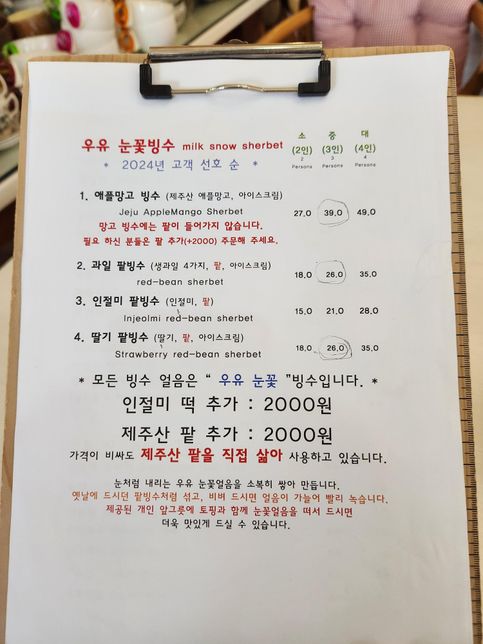 우유 눈꽃빙수 milk snow sherbet
소 중 대
(2인) (3인) (4인)
2 3 4
Persons Persons Persons
* 2024년 고객 선호 순 *
1. 애플망고 빙수 (제주산 애플망고, 아이스크림)
Jeju AppleMango Sherbet 27,0 39,0 49,0
망고 빙수에는 팥이 들어가지 않습니다.
필요 하신 분들은 팥 추가(+2000) 주문해 주세요.
2. 과일 팥빙수 (생과일 4가지, 팥, 아이스크림)
red-bean sherbet 18,0 26,0 35,0
3. 인절미 팥빙수 (인절미, 팥)
Injeolmi red-bean sherbet 15,0 21,0 28,0
4. 딸기 팥빙수 (딸기, 팥, 아이스크림)
Strawberry red-bean sherbet 18,0 26,0 35,0
* 모든 빙수 얼음은 “ 우유 눈꽃 ”빙수입니다. *
인절미 떡 추가 : 2000원
제주산 팥 추가 : 2000원
가격이 비싸도 제주산 팥을 직접 삶아 사용하고 있습니다.
눈처럼 내리는 우유 눈꽃얼음을 소복히 쌓아 만듭니다.
옛날에 드시던 팥빙수처럼 섞고, 비벼 드시면 얼음이 가늘어 빨리 녹습니다.
제공된 개인 앞그릇에 토핑과 함께 눈꽃얼음을 떠서 드시면
더욱 맛있게 드실 수 있습니다.